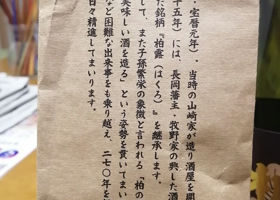 宝暦元年）、当時の山崎家が造り酒屋を開
十五年）には、長岡藩主・牧野家の興した酒
た銘柄『柏露（はくろ）』を継承します。
して、また子孫繁栄の象徴と言われる「柏の
美味しい酒を造る」という姿勢を貫いてまい
など困難な出来事をも乗り越え、二七〇年を
日々精進してまいります。